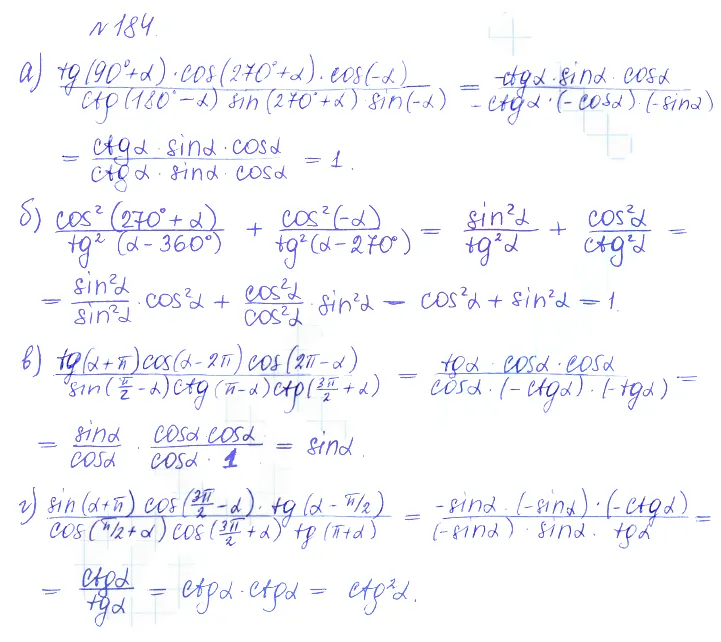 №184.
а) tg(90°+α)·cos(270°+α)·cos(-α) / ctg(180°-α) sin(270°+α) sin(-α) = -ctgα·sinα·cosα / -ctgα·(-cosα)·(-sinα)
= ctgα·sinα·cosα / ctgα·sinα·cosα = 1.
б) cos²(270°+α) / tg²(α-360°) + cos²(-α) / tg²(α-270°) = sin²α / tg²α + cos²α / ctg²α =
= sin²α / sin²α · cos²α + cos²α / cos²α · sin²α - cos²α + sin²α = 1.
в) tg(α+π)cos(α-2π)cos(2π-α) / sin(π/2-α)ctg(π-α)ctg(3π/2+α) = tgα·cosα·cosα / cosα·(-ctgα)·(-tgα) =
= sinα / cosα · cosα cosα / cosα·1 = sinα.
г) sin(α+π) cos(3π/2-α)·tg(α-π/2) / cos(π/2+α) cos(3π/2+α) tg(π+α) = -sinα·(-sinα)·(-ctgα) / (-sinα)·sinα·tgα =
= ctgα / tgα = ctgα·ctgα = ctg²α.